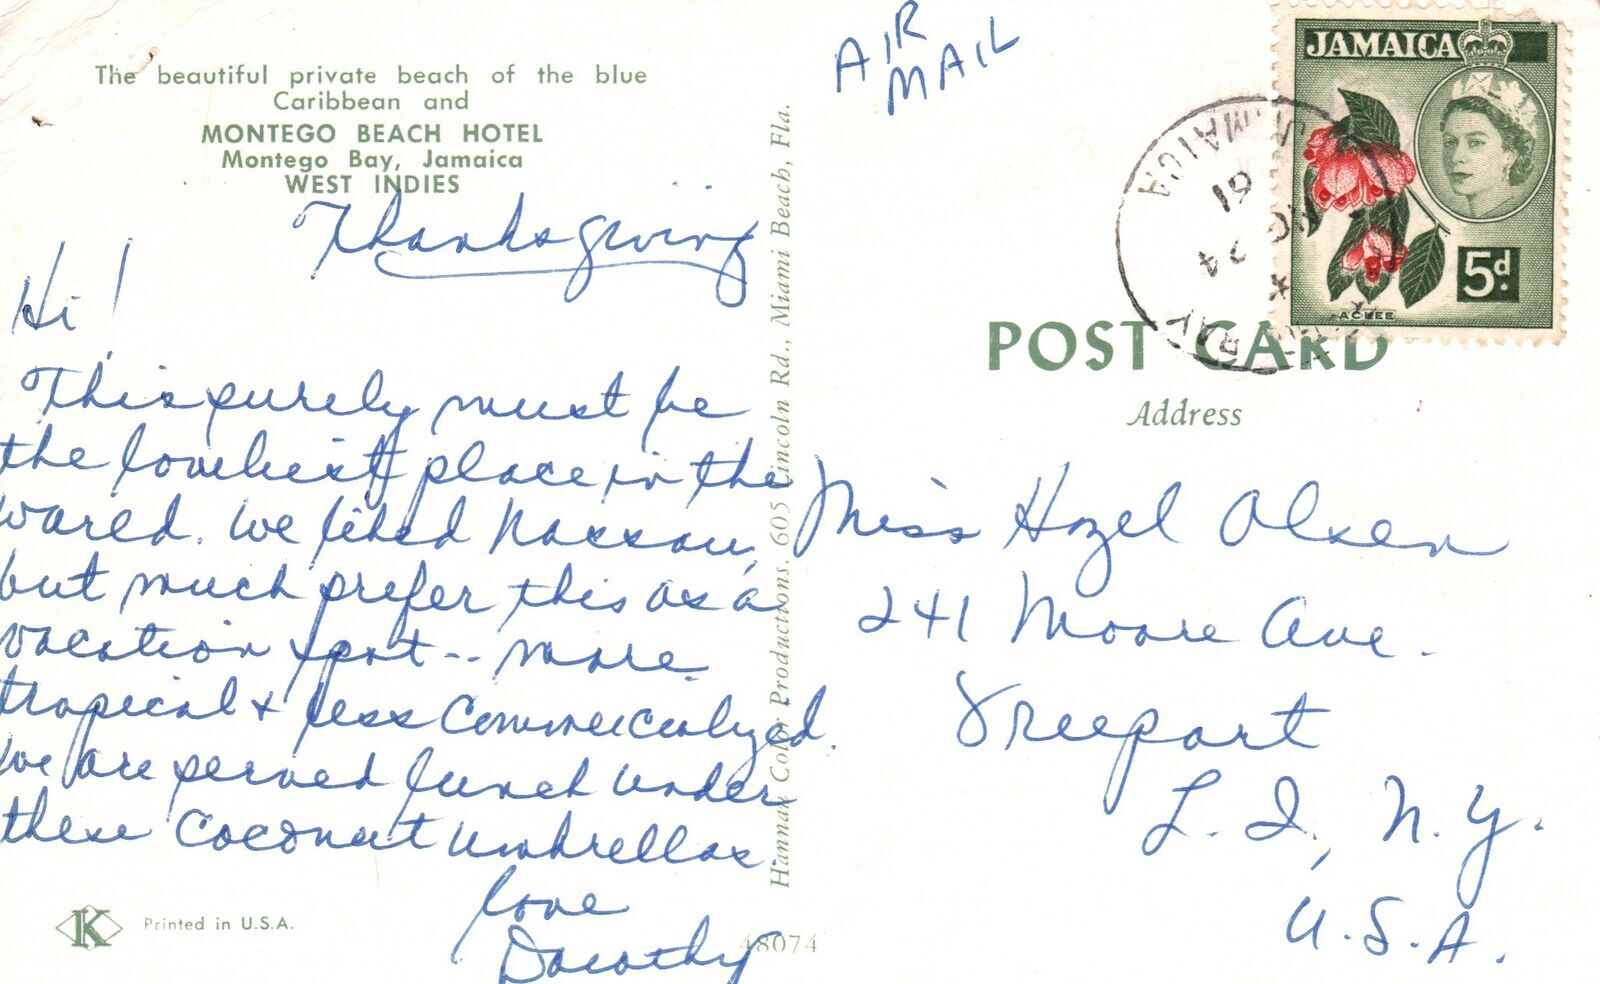 The beautiful private beach of the blue
Caribbean and
MONTEGO BEACH HOTEL
Montego Bay, Jamaica
WEST INDIES
Thanksgiving
Hi!
This surely must be
the loveliest place in the
world. We liked Nassau,
but much prefer this as a
vacation spot -- more
tropical & less commercialized.
We are served lunch under
these coconut umbrellas.
Love
Dorothy
K
Printed in U.S.A.
48074
Hannau Color Productions, 605 Lincoln Rd., Miami Beach, Fla.
AIR
MAIL
JAMAICA
5d.
ACKEE
JAMAICA
61
24
BAY
POST CARD
Address
Miss Hazel Olsen
241 Moore Ave.
Freeport
L. I., N. Y.
U. S. A.